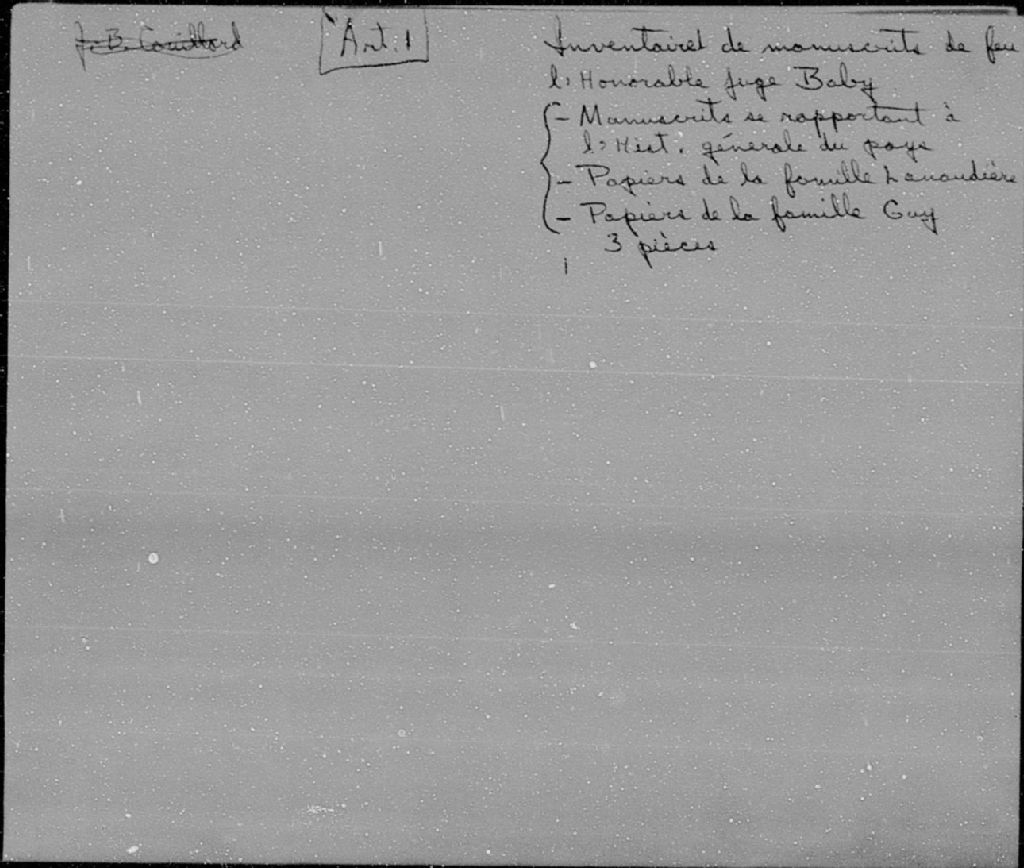 J. B. Couillard
Art. 1
Inventaires de manuscrits de feu
l'Honorable juge Baby
- Manuscrits se rapportant à
l'Hist. générale du pays
- Papiers de la famille Lanaudière
- Papiers de la famille Guy
3 pièces